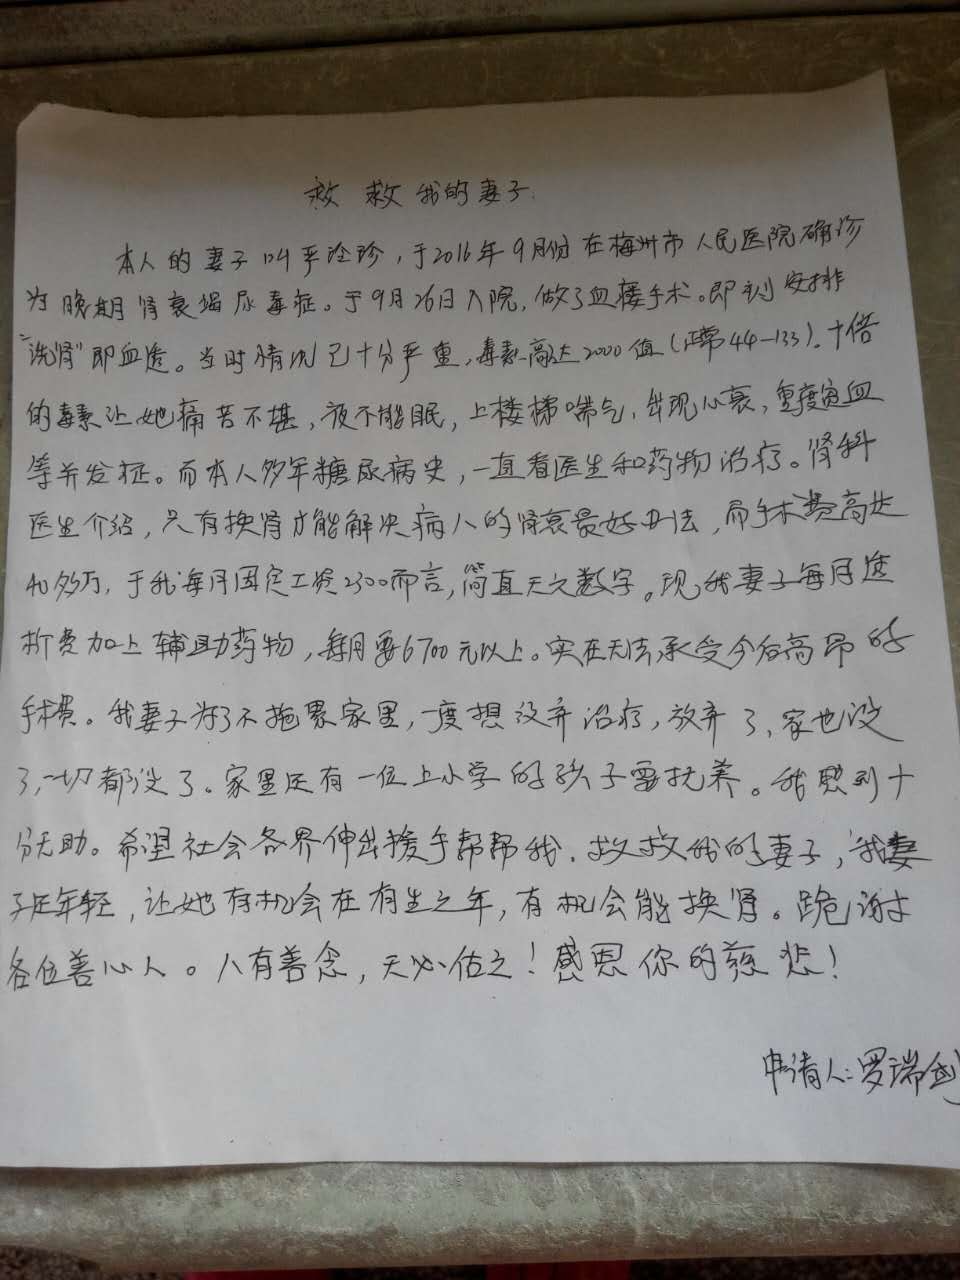 救救我的妻子.
本人的妻子叫严冷珍，于2016年9月份在梅州市人民医院确诊
为晚期肾衰竭尿毒症。于9月26日入院，做了血瘘手术。即刻安排
"洗肾"即血透。当时情况已十分严重，毒素高达2000值（正常44—133）。十倍
的毒素让她痛苦不堪，夜不能眠，上楼梯喘气，出现心衰，重度贫血
等并发症。而本人多年糖尿病史，一直看医生和药物治疗。肾科
医生介绍，只有换肾才能解决病人的肾衰最好办法，而手术费高达
40多万，于我每月固定工资2300而言，简直天文数字。现我妻子每月透
析费加上辅助药物，每月要6700元以上。实在无法承受今后高昂的
手术费。我妻子为了不拖累家里，一度想放弃治疗，放弃了，家也没
了，一切都没了。家里还有一位上小学的孩子需抚养。我感到十
分无助。希望社会各界伸出援手帮帮我，救救我的妻子，我妻
子还年轻，让她有机会在有生之年，有机会能换肾。跪谢
各位善心人。人有善念，天必佑之！感恩你的慈悲！
申请人：罗瑞